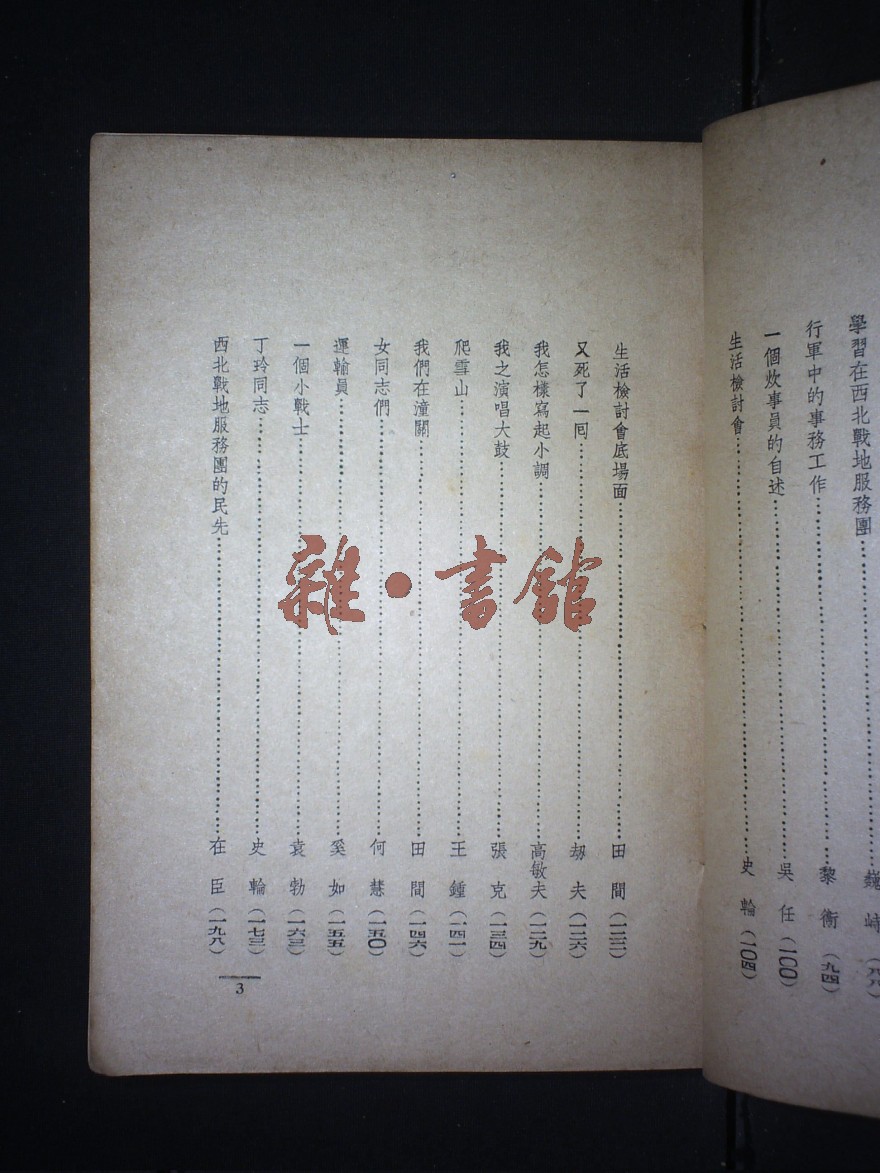 學習在西北戰地服務團……巍峙（八八）
行軍中的事務工作……黎衡（九四）
一個炊事員的自述……吳任（一〇〇）
生活檢討會……史輪（一〇四）
生活檢討會底場面……田間（一二二）
又死了一囘……劫夫（一二六）
我怎樣寫起小調……高敏夫（一二九）
我之演唱大鼓……張克（一三四）
爬雪山……王鍾（一四一）
我們在潼關……田間（一四六）
女同志們……何慧（一五〇）
運輸員……奚如（一五五）
一個小戰士……袁勃（一六三）
丁玲同志……史輪（一七三）
西北戰地服務團的民先……在臣（一九八）
3
雜·書館